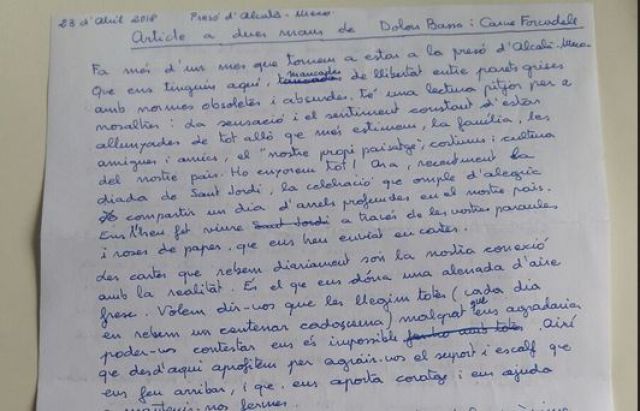 23 d'Abril 2018 Presó d'Alcalà-Meco.
Article a dues mans de Dolors Bassa i Carme Forcadell
Fa més d'un mes que tornem a estar a la presó d'Alcalà-Meco.
Que ens tinguin aquí, mancades de llibertat entre parets grises
amb normes obsoletes i absurdes, té una lectura pitjor per a
nosaltres: La sensació i el sentiment constant d'estar
allunyades de tot allò que més estimem, la família, les
amigues i amics, el "nostre propi paisatge", costums i cultura
del nostre país. Ho enyorem tot! Ara, recentment la
diada de Sant Jordi, la celebració que omple d'alegria
compartir un dia d'arrels profundes en el nostre país.
Ens l'heu fet viure Sant Jordi a través de les vostres paraules
i roses de paper, que ens heu enviat en cartes.
Les cartes que rebem diariament són la nostra conexió
amb la realitat. És el que ens dóna una alenada d'aire
fresc. Volem dir-vos que les llegim totes (cada dia
en rebem un centenar cadascuna) malgrat que ens agradaria
poder-vos contestar ens és impossible fer-ho amb totes. Així
que desd'aquí aprofitem per agrair-vos el suport i escalf que
ens feu arribar, i que, ens aporta coratge i ens ajuda
a mantenir-nos fermes.